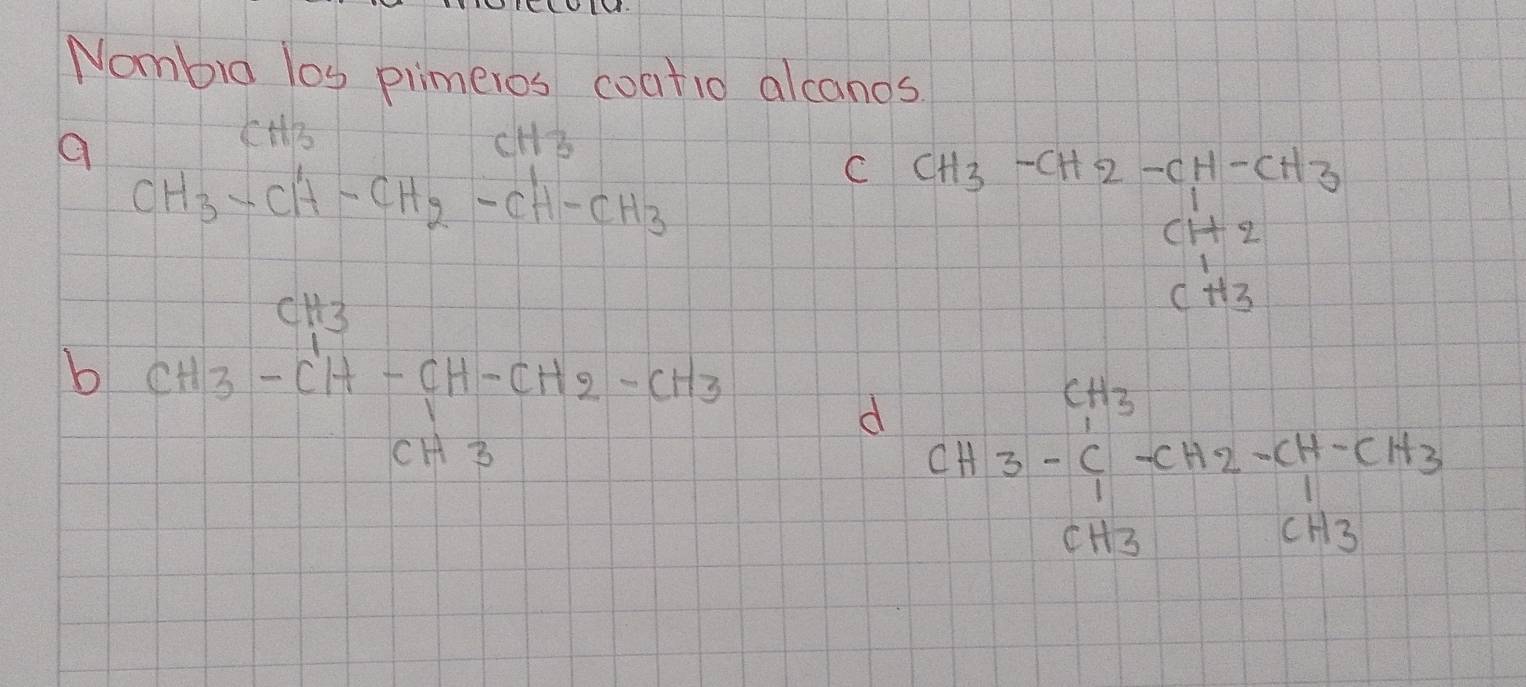 Nombra los primeros coatro alcanos.
a
CH3 CH3
CH3-CH-CH2-CH-CH3
b
CH3
CH3-CH-CH-CH2-CH3
CH3
c CH3-CH2-CH-CH3
CH2
CH3
d
CH3
CH3-C-CH2-CH-CH3
CH3 CH3